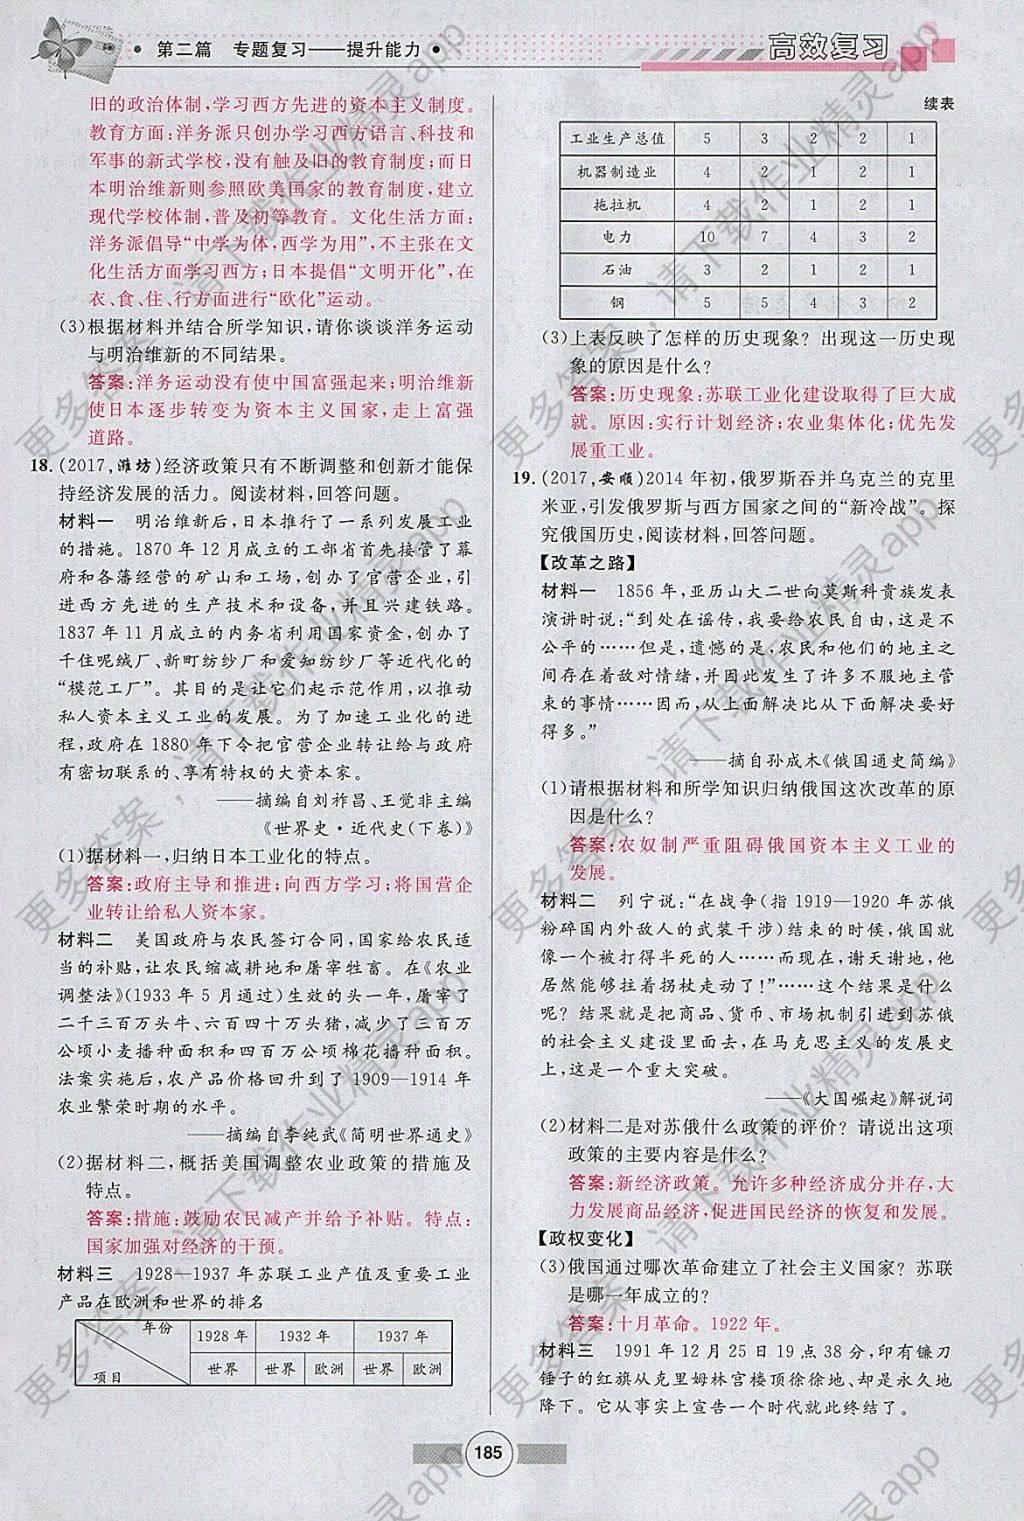 第二篇 专题复习——提升能力
高效复习
旧的政治体制,学习西方先进的资本主义制度。
教育方面:洋务派只创办学习西方语言、科技和
军事的新式学校,没有触及旧的教育制度;而日
本明治维新则参照欧美国家的教育制度,建立
现代学校体制,普及初等教育。文化生活方面:
洋务派倡导“中学为体,西学为用”,不主张在文
化生活方面学习西方;日本提倡“文明开化”,在
衣、食、住、行方面进行“欧化”运动。
(3)根据材料并结合所学知识,请你谈谈洋务运动
与明治维新的不同结果。
答案:洋务运动没有使中国富强起来;明治维新
使日本逐步转变为资本主义国家,走上富强
道路。
18.(2017,潍坊)经济政策只有不断调整和创新才能保
持经济发展的活力。阅读材料,回答问题。
材料一 明治维新后,日本推行了一系列发展工业
的措施。1870年12月成立的工部省首先接管了幕
府和各藩经营的矿山和工场,创办了官营企业,引
进西方先进的生产技术和设备,并且兴建铁路。
1837年11月成立的内务省利用国家资金,创办了
千住呢绒厂、新町纺纱厂和爱知纺纱厂等近代化的
“模范工厂”。其目的是让它们起示范作用,以推动
私人资本主义工业的发展。为了加速工业化的进
程,政府在1880年下令把官营企业转让给与政府
有密切联系的、享有特权的大资本家。
——摘编自刘祚昌、王觉非主编
《世界史·近代史(下卷)》
(1)据材料一,归纳日本工业化的特点。
答案:政府主导和推进;向西方学习;将国营企
业转让给私人资本家。
材料二 美国政府与农民签订合同,国家给农民适
当的补贴,让农民缩减耕地和屠宰牲畜。在《农业
调整法》(1933年5月通过)生效的头一年,屠宰了
二千三百万头牛、六百四十万头猪,减少了三百万
公顷小麦播种面积和四百万公顷棉花播种面积。
法案实施后,农产品价格回升到了1909—1914年
农业繁荣时期的水平。
——摘编自李纯武《简明世界通史》
(2)据材料二,概括美国调整农业政策的措施及
特点。
答案:措施:鼓励农民减产并给予补贴。特点:
国家加强对经济的干预。
材料三 1928—1937年苏联工业产值及重要工业
产品在欧洲和世界的排名
年份 1928年 1932年 1937年
项目 世界 世界 欧洲 世界 欧洲
续表
工业生产总值 5 3 2 2 1
机器制造业 4 2 1 2 1
拖拉机 4 2 1 2 1
电力 10 7 4 3 2
石油 3 2 1 2 1
钢 5 5 4 3 2
(3)上表反映了怎样的历史现象?出现这一历史现
象的原因是什么?
答案:历史现象:苏联工业化建设取得了巨大成
就。原因:实行计划经济;农业集体化;优先发
展重工业。
19.(2017,安顺)2014年初,俄罗斯吞并乌克兰的克里
米亚,引发俄罗斯与西方国家之间的“新冷战”。探
究俄国历史,阅读材料,回答问题。
【改革之路】
材料一 1856年,亚历山大二世向莫斯科贵族发表
演讲时说:“到处在谣传,我要给农民自由,这是不
公平的……但是,遗憾的是,农民和他们的地主之
间存在着敌对情绪,并因此发生了许多不服地主管
束的事情……因而,从上面解决比从下面解决要好
得多。”
——摘自孙成木《俄国通史简编》
(1)请根据材料和所学知识归纳俄国这次改革的原
因是什么?
答案:农奴制严重阻碍俄国资本主义工业的
发展。
材料二 列宁说:“在战争(指1919—1920年苏俄
粉碎国内外敌人的武装干涉)结束的时候,俄国就
像一个被打得半死的人……而现在,谢天谢地,他
居然能够拄着拐杖走动了!”……这个结果是什么
呢?结果就是把商品、货币、市场机制引进到苏俄
的社会主义建设里面去,在马克思主义的发展史
上,这是一个重大突破。
——《大国崛起》解说词
(2)材料二是对苏俄什么政策的评价?请说出这项
政策的主要内容是什么?
答案:新经济政策。允许多种经济成分并存,大
力发展商品经济,促进国民经济的恢复和发展。
【政权变化】
(3)俄国通过哪次革命建立了社会主义国家?苏联
是哪一年成立的?
答案:十月革命。1922年。
材料三 1991年12月25日19点38分,印有镰刀
锤子的红旗从克里姆林宫楼顶徐徐地、却是永久地
降下。它从事实上宣告一个时代就此终结了。
185
更多答案,请下载作业精灵app